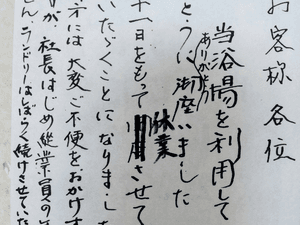 お客様各位
当浴場を利用して
ありがとうございました
十一日をもって休業させて
いただくことになりました
方には大変ご不便をおかけす
が、社長はじめ従業員の
ランドリーはしばらく続けさせていた